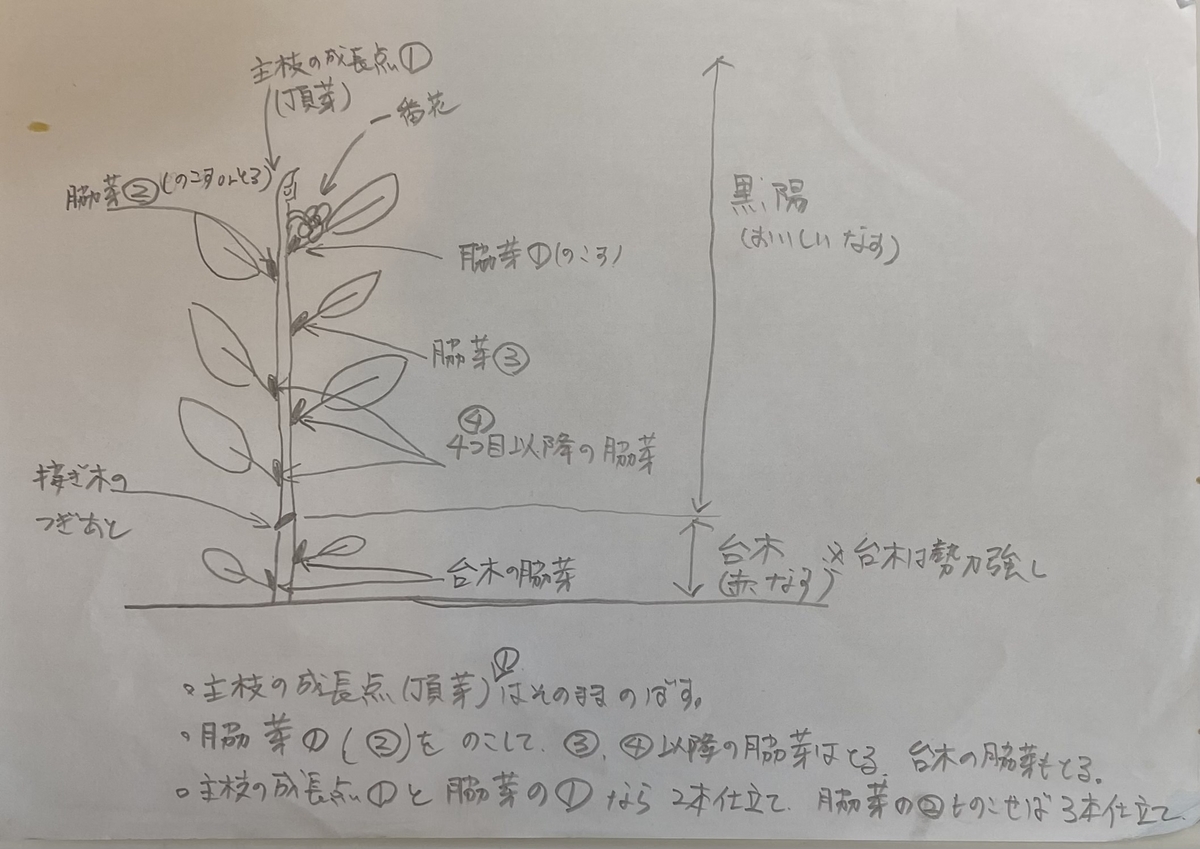 主枝の成長点①
(頂芽)
一番花
脇芽②(のこすorとる)
黒陽
(おいしいなす)
脇芽①(のこす)
脇芽③
④
4つ目以降の脇芽
接ぎ木の
つぎあと
台木 ※台木は勢力強し
(赤なす)
台木の脇芽
①
・主枝の成長点(頂芽)はそのままのばす。
・脇芽①(②)をのこして、③、④以降の脇芽はとる。台木の脇芽もとる。
○主枝の成長点①と脇芽の①なら2本仕立て、脇芽の②ものこせば3本仕立て